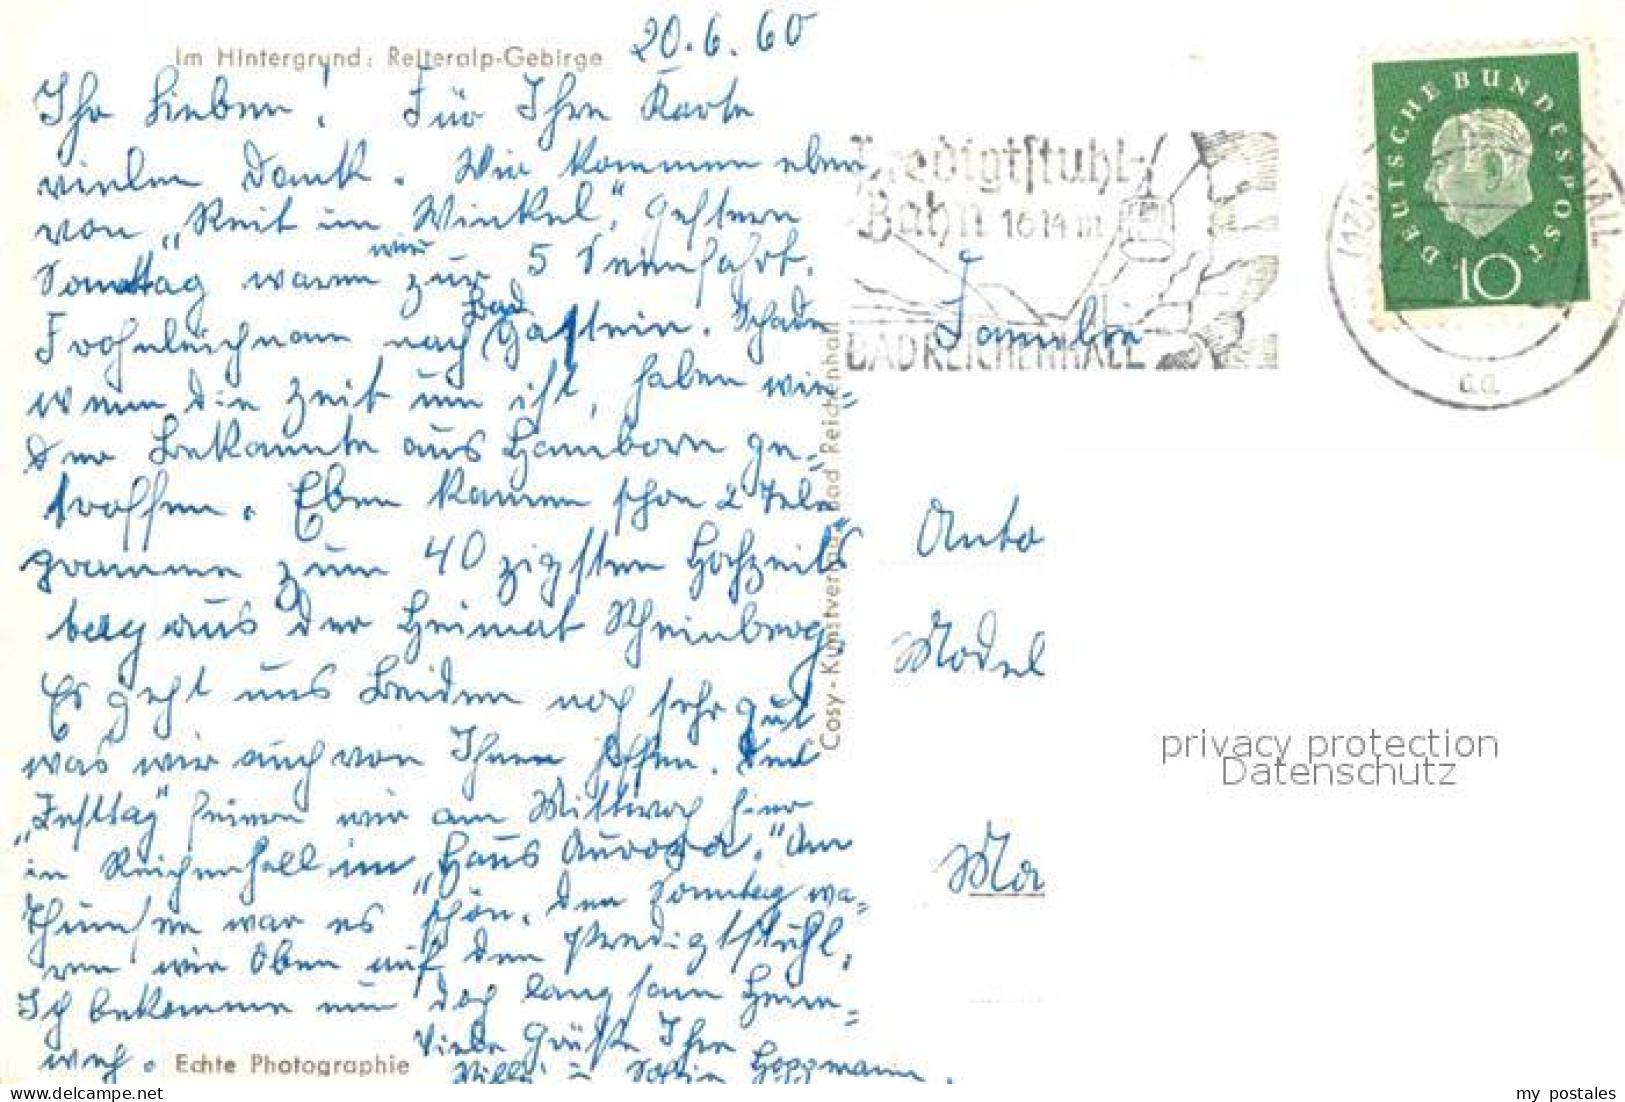 Im Hintergrund: Reiteralp-Gebirge
20.6.60
Ihr Lieben! Für Ihre Karte
vielen Dank. Wir kommen eben
von „Reit im Winkel", gestern
Sonntag waren wir zur 5 Seenfahrt.
Frohnleichnam nach Bad Gastein. Schade
wenn die Zeit um ist, haben wie=
der Bekannte aus Hamborn ge=
troffen. Eben kamen schon 2 Tele
gramme zum 40 zigsten Hochzeits
tag aus der Heimat Rheinberg.
Es geht uns Beiden noch sehr gut
was wir auch von Ihnen hoffen. Den
„Festtag" feiern wir am Mittwoch hier
in Reichenhall im „Haus Aurora." Am
schön. Den Sonntag wa=
ren wir Oben auf dem Predigtstuhl.
Ich bekomme nun doch langsam Heim=
weh.
Viele Grüße Ihre
Willi u
Hoppmann.
Echte Photographie
Cosy-Kunstverlag Bad Reichenhall
Predigtstuhl-
Bahn 1614 m
BAD REICHENHALL
aa
DEUTSCHE BUNDESPOST
10
Familie
Anto
Model
Ma
privacy protection
Datenschutz
my postales